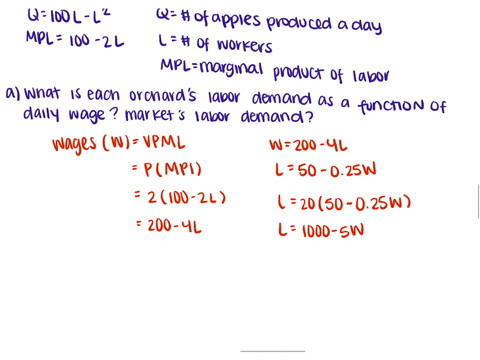 Q=100L-L²
MPL= 100-2L
Q= # of apples produced a day
L= # of workers
MPL=marginal product of labor
a) What is each orchard's labor demand as a function of
daily wage? market's labor demand?
Wages (W)= VPML
= P(MPl)
= 2(100-2L)
= 200-4L
W=200-4L
L= 50-0.25W
L=20(50-0.25W)
L= 1000-5W